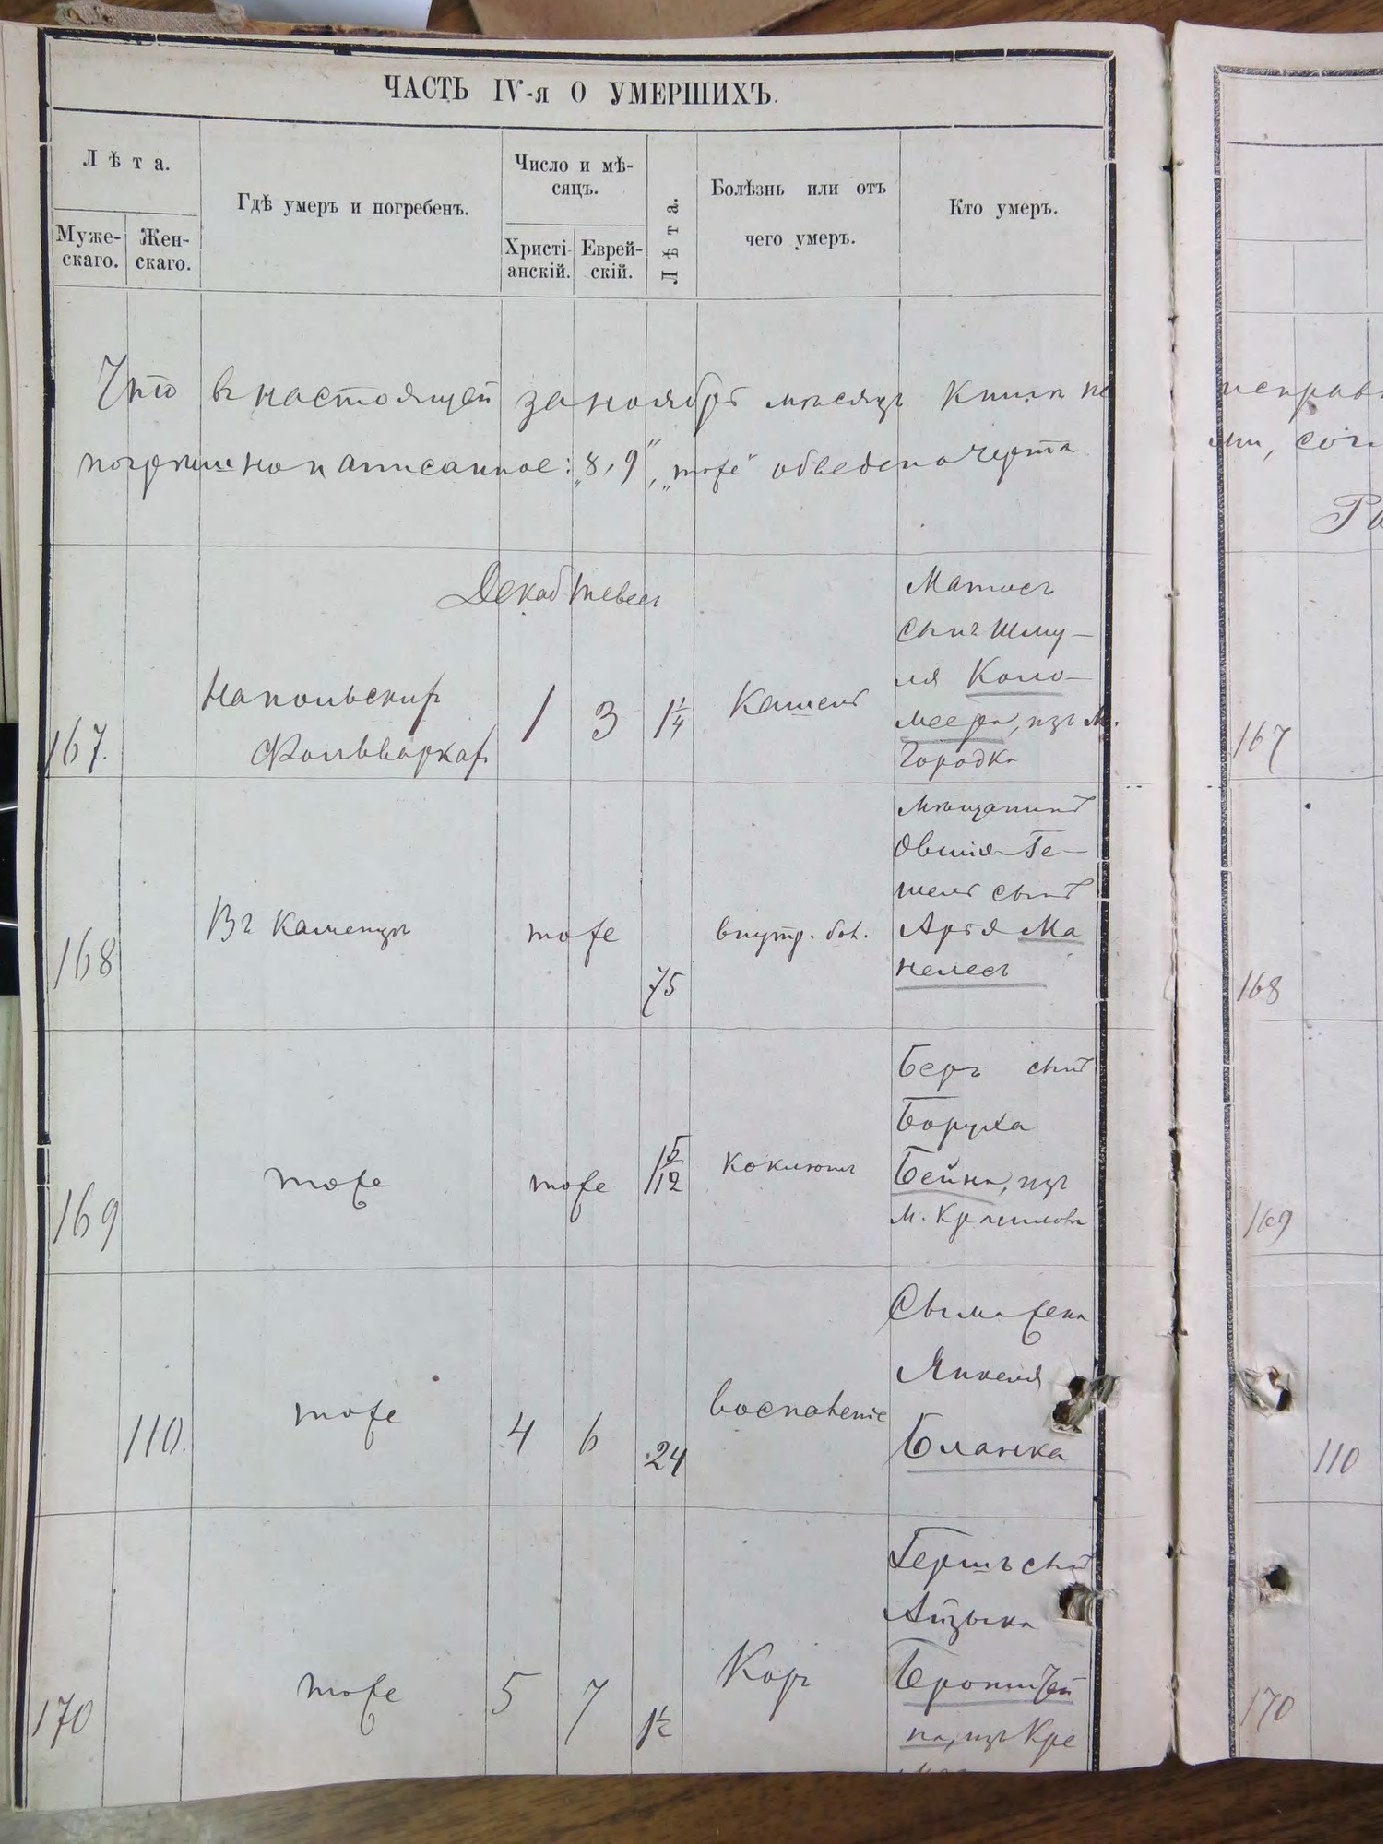 ЧАСТЬ IV-я О УМЕРШИХЪ.
Лѣта.
Муже-
скаго.
Жен-
скаго.
Гдѣ умеръ и погребенъ.
Число и мѣ-
сяцъ.
Христі-
анскій.
Еврей-
скій.
Лѣта.
Болѣзнь или отъ
чего умеръ.
Кто умеръ.
Что в настоящей за ноябрь мѣсяцъ книгѣ не
погрѣшно написанное: „8, 9", „тоже" обведено черта
Декаб Тевесъ
167.
На польских
Фольварках
1
3
1 1/4
Кашель
Матысъ
сынъ Шму-
ля Коло-
меера, изъ м.
Городка
168
Въ Каменцѣ
тоже
75
внутр. бол.
мѣщанинъ
Овшія Ге-
шель сынъ
Арія Ма
нелесъ
169
тоже
тоже
1 5/12
коклюшъ
Беръ сынъ
Боруха
Бейна, изъ
м.
110.
тоже
4
6
24
воспаленіе
Сыма жена
Янкеля
Бланка
170
тоже
5
7
1 1/2
Корь
Гершъ сынъ
Айзыка
Бронштей
на, изъ Кре
167
168
169
110
170
исправ
ми, сог
Ра